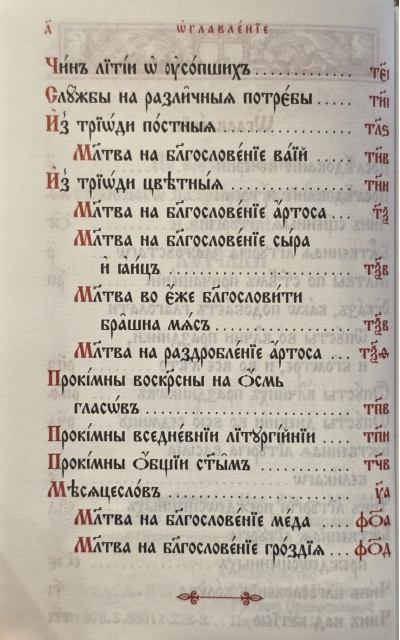 д҃ ѡ҆главле́нїе
Чи́нъ лїтїи̑ ѡ҆ ᲂу҆со́пшихъ ........... тє҃і
Слꙋ́жбы на разли̑чныѧ потре́бы ..... ти҃і
И҆з̾ трїѡ́ди по́стныѧ ................ тл҃ѕ
Мл҃тва на бл҃гослове́нїе ва́їй .... тн҃в
И҆з̾ трїѡ́ди цвѣ́тныѧ ............... тн҃и
Мл҃тва на бл҃гослове́нїе а҆́ртоса ... тѯ҃
Мл҃тва на бл҃гослове́нїе сы́ра
и҆ ꙗ҆и́цъ ...................... тѯ҃в
Мл҃тва во є҆́же бл҃гослови́ти
бра̑шна мѧ́съ ................. тѯ҃в
Мл҃тва на раздробле́нїе а҆́ртоса ... тѯ҃ѳ
Прокі́мны воскрⷭ҇ны на ѻ҆́смь
гласѡ́въ ...................... тп҃в
Прокі́мны вседне́внїи лїтꙋргі́йнїи .... тп҃и
Прокі́мны ѻ҆́бщїи ст҃ы̑мъ .......... тч҃в
Мѣсѧцесло́въ ..................... у҃а
Мл҃тва на бл҃гослове́нїе ме́да .... фѻ҃а
Мл҃тва на бл҃гослове́нїе гро́здїѧ ... фѻ҃д